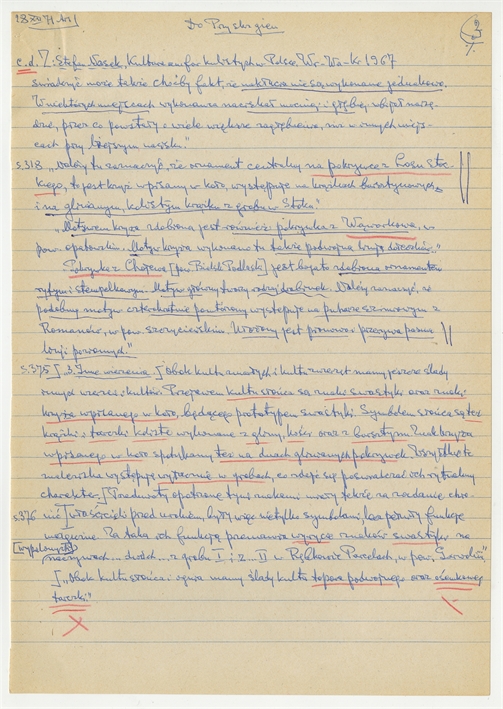 Do Pryskorgien
c.d. Z: Stefan Nosek, Kultura amfor kulistych w Polsce, Wr.-Wa-Kr 1967
świadczyć może także choćby fakt, że nakłucia nie są wykonane jednakowo.
W niektórych miejscach wykonawca naciskał mocniej i głębiej wbijał narzę-
dzie, przez co powstały o wiele większe zagłębienia, niż w innych miejs-
cach przy lżejszym nacisku."
s.318 "Należy tu zaznaczyć, że ornament centralny na pokrywce z Losu Stec-
kiego, to jest krzyż wpisany w koło, występuje na krążkach bursztynowych
i na glinianym, kolistym krążku z grobu w Stoku."
"Motywem krzyża zdobiona jest również pokrywka z Wąworkowa, w
pow. opatowski. Motyw krzyża wykonano tu także podwójną linią ."
Pokrywka z Chojewa [pow. Bielsk Podlaski] jest bogato zdobiona ornamentem
rytym i stempelkowym. Motyw główny tworzy rodzaj drabinek. Należy zaznaczyć, że
podobny motyw czterokrotnie powtórzony występuje na pucharze sznurowym z
Romanów, w pow. szczyciewskim. Utworzony jest pionowo i przerywa pasma
linij poziomych."
s.375 [3. Inne wierzenia] "Obok kultu zmarłych i kultu zwierząt mamy jeszcze ślady
innych wierzeń i kultów. Przejawem kultu słońca są znaki swastyki oraz znaki
krzyża wpisanego w koło, będącego prototypem swastyki. Symbolem słońca są też
krążki i tarczki koliste wykonane z gliny, kości oraz z bursztynu. Znak krzyża
wpisanego w koło spotykamy też na dnach glinianych pokrywek. Wszystkie te
znaleziska występują wyłącznie w grobach, co zdaje się poświadczać ich rytualny
charakter. Przedmioty opatrzone tymi znakami miały także za zadanie chro-
s.376 nić właścicieli przed urokiem, były więc nie tylko symbolami, lecz pełniły funkcje
magiczne. Za taką ich funkcją przemawia wyrycie znaków swastyki na
[wypełnionych] naczyniach... dwóch... z grobu I i z... II w Rębkowie Parcelach, w pow. Garwolin"
["Obok kultu słońca i ognia mamy ślady kultu topora podwójnego oraz ósemkowej
tarczki."